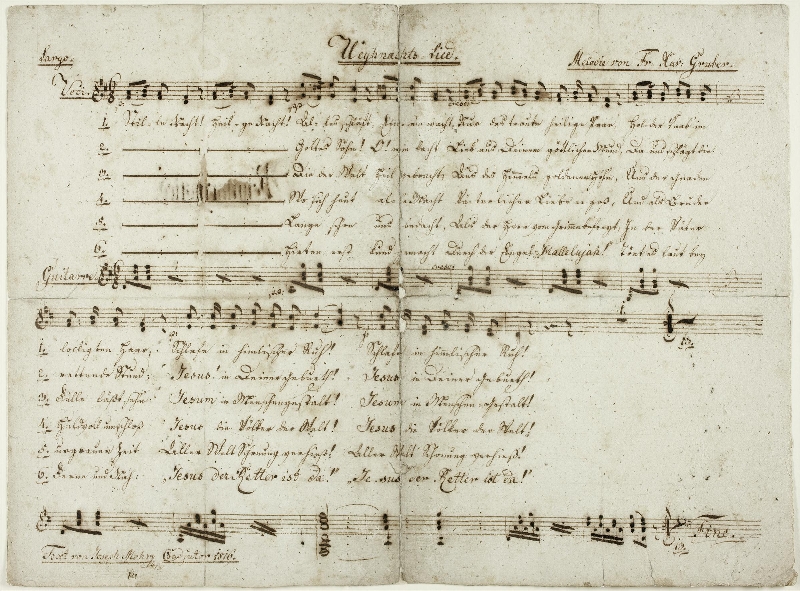 Weyhnachts-Lied.
Largo. Melodie von Fr. Xav: Gruber.
Voce.
1. Stil-le Nacht! Heil-ge Nacht! Alles schläft. Einsam wacht Nur das traute heilige Paar. Holder Knab' im
2. Gottes Sohn! O! wie lacht Lieb' aus Deinem göttlichen Mund, Da uns schlägt die
3. Die der Welt Heil gebracht, Aus des Himmels goldenen Höhn, Uns der Gnaden
4. Wo sich heut alle Macht Väterlicher Liebe ergoß, Und als Bruder
5. Lange schon uns bedacht, Als der Herr vom Grimme befreyt, In der Väter
6. Hirten erst kund gemacht Durch der Engel Hallelujah! Tönt es laut bey
Guitarre.
1. lockigten Haar; Schlafe in himmlischer Ruh! Schlafe in himmlischer Ruh!
2. rettende Stund: Jesus! in Deiner Geburth! Jesus in Deiner Geburth!
3. Fülle läßt sehn Jesum in Menschengestalt! Jesum in Menschen-Gestalt!
4. Huldvoll umschloß Jesus die Völker der Welt! Jesus die Völker der Welt!
5. urgrauer Zeit Aller Welt Schonung verhieß! Aller Welt Schonung verhieß!
6. Ferne und Nah: "Jesus der Retter ist da!" "Jesus der Retter ist da!"
Fine.
Text von Joseph Mohr Coadjutor 1816.